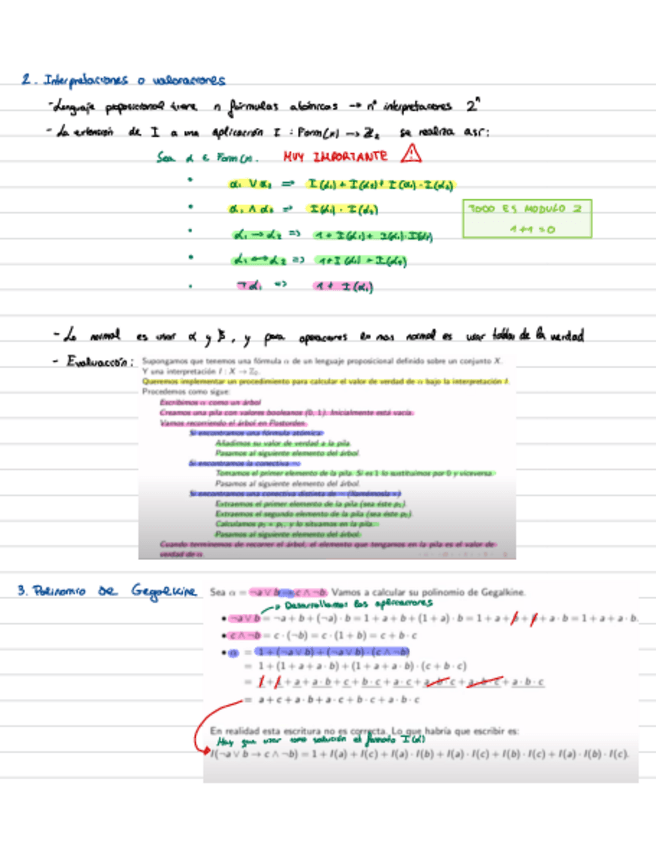 2. Interpretaciones o valoraciones
- Lenguaje proposicional tiene n fórmulas atómicas → nº interpretaciones 2ⁿ
- La extensión de I a una aplicación I : Form(x) → ℤ₂ se realiza así:
Sea α ∈ Form(x). MUY IMPORTANTE
• α₁ ∨ α₂ => I(α₁) + I(α₂) + I(α₁) · I(α₂)
• α₁ ∧ α₂ => I(α₁) · I(α₂)
TODO ES MODULO 2
1+1=0
• α₁ → α₂ => 1 + I(α₁) + I(α₁) · I(α₂)
• α₁ ↔ α₂ => 1 + I(α₁) + I(α₂)
• ¬α₁ => 1 + I(α₁)
- Lo normal es usar α y β, y para operaciones lo más normal es usar tablas de la verdad
- Evaluación: Supongamos que tenemos una fórmula α de un lenguaje proposicional definido sobre un conjunto X.
Y una interpretación I : X → ℤ₂.
Queremos implementar un procedimiento para calcular el valor de verdad de α bajo la interpretación I.
Procedemos como sigue:
Escribimos α como un árbol
Creamos una pila con valores booleanos (0, 1). Inicialmente está vacía.
Vamos recorriendo el árbol en Postorden.
Si encontramos una fórmula atómica:
Añadimos su valor de verdad a la pila.
Pasamos al siguiente elemento del árbol.
Si encontramos la conectiva ¬:
Tomamos el primer elemento de la pila. Si es 1 lo sustituimos por 0 y viceversa.
Pasamos al siguiente elemento del árbol.
Si encontramos una conectiva distinta de ¬ (llamémosla ∗)
Extraemos el primer elemento de la pila (sea éste p₂).
Extraemos el segundo elemento de la pila (sea éste p₁).
Calculamos p₁ ∗ p₂, y lo situamos en la pila.
Pasamos al siguiente elemento del árbol.
Cuando terminemos de recorrer el árbol, el elemento que tengamos en la pila es el valor de
verdad de α.
3. Polinomio de Gegalkine Sea α = ¬a ∨ b → c ∧ ¬b. Vamos a calcular su polinomio de Gegalkine.
→ Desarrollamos las aplicaciones
• ¬a ∨ b = ¬a + b + (¬a) · b = 1 + a + b + (1 + a) · b = 1 + a + b + b + a · b = 1 + a + a · b.
• c ∧ ¬b = c · (¬b) = c · (1 + b) = c + b · c
• α = 1 + (¬a ∨ b) + (¬a ∨ b) · (c ∧ ¬b)
= 1 + (1 + a + a · b) + (1 + a + a · b) · (c + b · c)
= 1 + 1 + a + a · b + c + b · c + a · c + a · b · c + a · b · c + a · b · c
= a + c + a · b + a · c + b · c + a · b · c
En realidad esta escritura no es correcta. Lo que habría que escribir es:
Hay que usar como solución el formato I(α)
I(¬a ∨ b → c ∧ ¬b) = 1 + I(a) + I(c) + I(a) · I(b) + I(a) · I(c) + I(b) · I(c) + I(a) · I(b) · I(c).